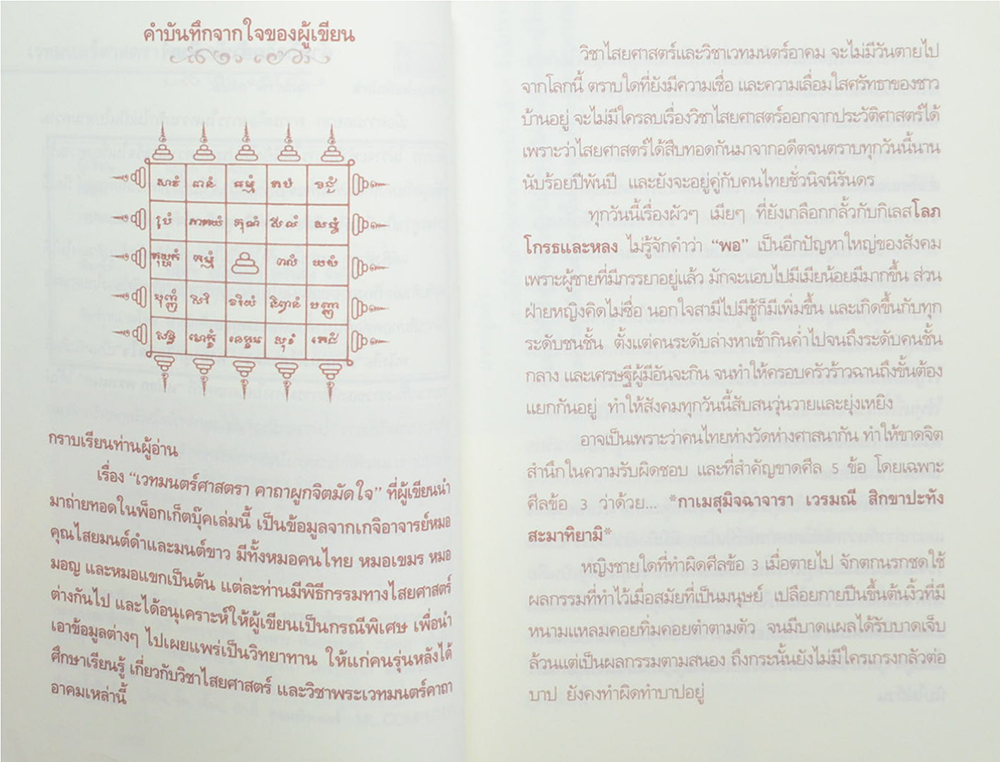 คำบันทึกจากใจของผู้เขียน
กราบเรียนท่านผู้อ่าน
เรื่อง “เวทมนตร์ศาสตรา คาถาผูกจิตมัดใจ” ที่ผู้เขียนนำ
มาถ่ายทอดในพ็อกเก็ตบุ๊คเล่มนี้ เป็นข้อมูลจากเกจิอาจารย์หมอ
คุณไสยมนต์ดำและมนต์ขาว มีทั้งหมอคนไทย หมอเขมร หมอ
มอญ และหมอแขกเป็นต้น แต่ละท่านมีพิธีกรรมทางไสยศาสตร์
ต่างกันไป และได้อนุเคราะห์ให้ผู้เขียนเป็นกรณีพิเศษ เพื่อนำ
เอาข้อมูลต่างๆ ไปเผยแพร่เป็นวิทยาทาน ให้แก่คนรุ่นหลังได้
ศึกษาเรียนรู้ เกี่ยวกับวิชาไสยศาสตร์ และวิชาพระเวทมนตร์คาถา
อาคมเหล่านี้
วิชาไสยศาสตร์และวิชาเวทมนตร์อาคม จะไม่มีวันตายไป
จากโลกนี้ ตราบใดที่ยังมีความเชื่อ และความเลื่อมใสศรัทธาของชาว
บ้านอยู่ จะไม่มีใครลบเรื่องวิชาไสยศาสตร์ออกจากประวัติศาสตร์ได้
เพราะว่าไสยศาสตร์ได้สืบทอดกันมาจากอดีตจนตราบทุกวันนี้นาน
นับร้อยปีพันปี และยังจะอยู่คู่กับคนไทยชั่วนิจนิรันดร
ทุกวันนี้เรื่องผัวๆ เมียๆ ที่ยังเกลือกกลั้วกับกิเลสโลภ
โกรธและหลง ไม่รู้จักคำว่า “พอ” เป็นอีกปัญหาใหญ่ของสังคม
เพราะผู้ชายที่มีภรรยาอยู่แล้ว มักจะแอบไปมีเมียน้อยมีมากขึ้น ส่วน
ฝ่ายหญิงคิดไม่ซื่อ นอกใจสามีไปมีชู้ก็มีเพิ่มขึ้น และเกิดขึ้นกับทุก
ระดับชนชั้น ตั้งแต่คนระดับล่างหาเช้ากินค่ำไปจนถึงระดับคนชั้น
กลาง และเศรษฐีผู้มีอันจะกิน จนทำให้ครอบครัวร้าวฉานถึงขั้นต้อง
แยกกันอยู่ ทำให้สังคมทุกวันนี้สับสนวุ่นวายและยุ่งเหยิง
อาจเป็นเพราะว่าคนไทยห่างวัดห่างศาสนากัน ทำให้ขาดจิต
สำนึกในความรับผิดชอบ และที่สำคัญขาดศีล 5 ข้อ โดยเฉพาะ
ศีลข้อ 3 ว่าด้วย... *กาเมสุมิจฉาจารา เวรมณี สิกขาปะทัง
สะมาทิยามิ*
หญิงชายใดที่ทำผิดศีลข้อ 3 เมื่อตายไป จักตกนรกชดใช้
ผลกรรมที่ทำไว้เมื่อสมัยที่เป็นมนุษย์ เปลือยกายปีนขึ้นต้นงิ้วที่มี
หนามแหลมคอยทิ่มคอยตำตามตัว จนมีบาดแผลได้รับบาดเจ็บ
ล้วนแต่เป็นผลกรรมตามสนอง ถึงกระนั้นยังไม่มีใครเกรงกลัวต่อ
บาป ยังคงทำผิดทำบาปอยู่